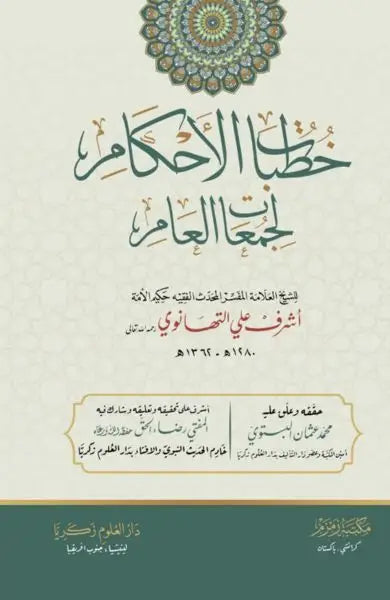 خُطُبَاتُ الأَحْكَامِ
لِجُمُعَاتِ العَامِ
للشيخ العلامة المفسر المحدث الفقيه حكيم الأمة
أشرف علي التهانوي رحمه الله تعالى
١٢٨٠هـ - ١٣٦٢هـ
حققه وعلق عليه
محمد عثمان البستوي
أمين المكتبة وعضو دار التأليف بدار العلوم زكريا
أشرف على تحقيقه وتعليقه وشارك فيه
المفتي رضاء الحق حفظه الله ورعاه
خادم الحديث النبوي والإفتاء بدار العلوم زكريا
مكتبة زمزم
كراتشي، باكستان
دار العلوم زكريا
لينيشيا، جنوب افريقيا